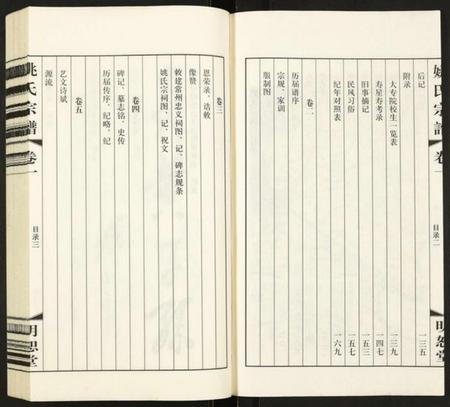 姚氏宗譜 卷一 目录二 明恕堂
后记 一三五
附录
大专院校生一览表 一三九
寿星寿考录 一四七
旧事摘记 一五三
民风习俗 一五七
纪年对照表 一六九
卷二
历届谱序
宗规、家训
服制图
卷三
恩荣录、诰敕
像赞
敕建常州忠义祠图、记、碑志规条
姚氏宗祠图、记、祝文
卷四
碑记、墓志铭、史传
历届传序、纪略、纪
卷五
艺文诗斌
源流
姚氏宗譜 卷一 目录三 明恕堂